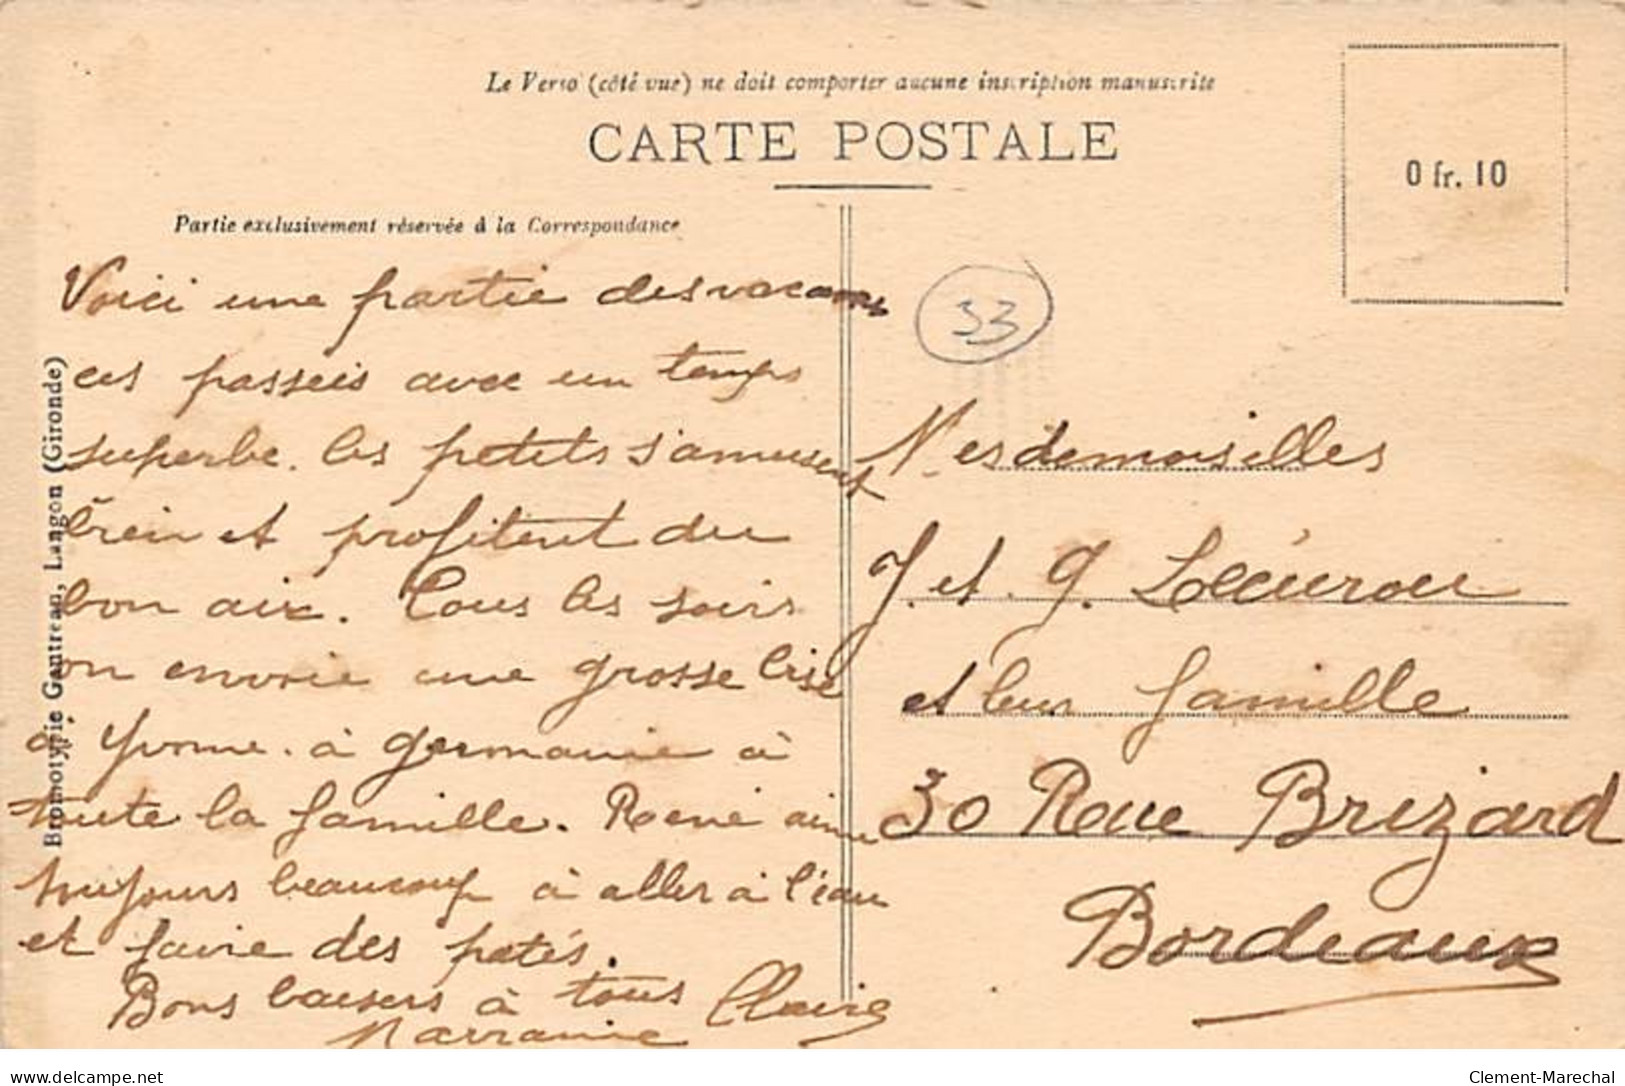 Le Verso (côté vue) ne doit comporter aucune inscription manuscrite
CARTE POSTALE
0 fr. 10
Partie exclusivement réservée à la Correspondance
Bromotypie Gautreau, Langon (Gironde)
Voici une partie des vacan
ces passeis avec un temps
superbe. les petits s'amusent
bien et profitent du
bon air. Tous les soirs
on envoie une grosse bise
à Yvonne. à Germaine à
toute la famille. René aime
toujours beaucoup à aller à l'eau
et faire des patés.
Bons baisers à tous
Marraine Claire
33
Mesdemoiselles
J. et G. Lécurou
et leur famille
30 Rue Brizard
Bordeaux
delcampe.net
Clement-Marechal